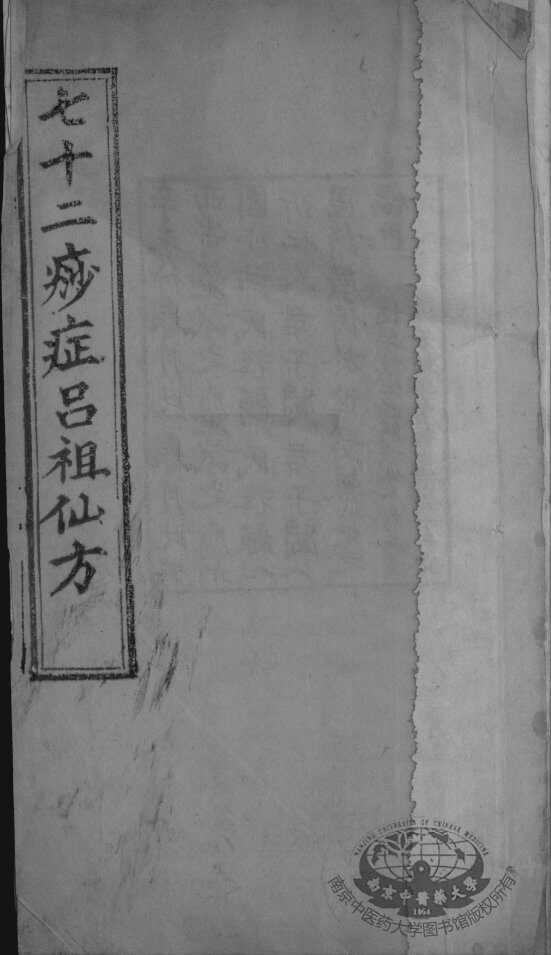 七十二痧症呂祖仙方
NANJING UNIVERSITY OF CHINESE MEDICINE
南京中醫藥大學
1954
南京中医药大学图书馆版权所有